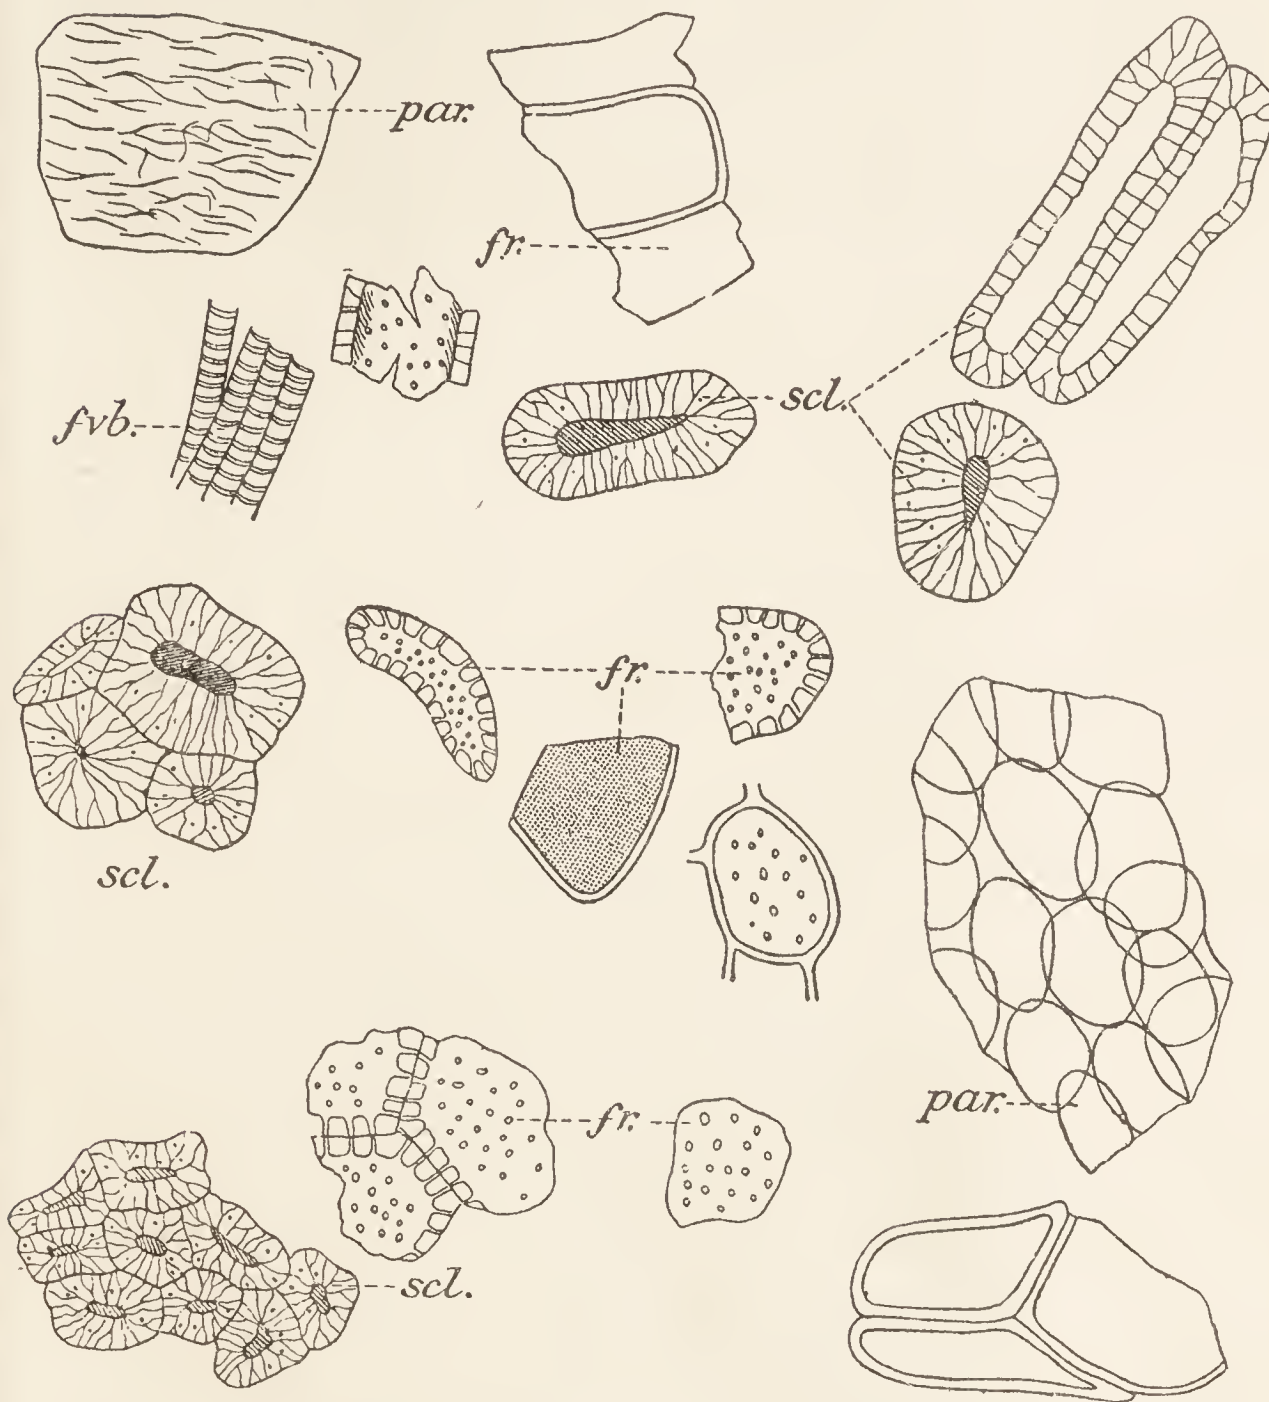 par.
fr.
fvb.
scl.
fr.
scl.
fr.
par.
scl.